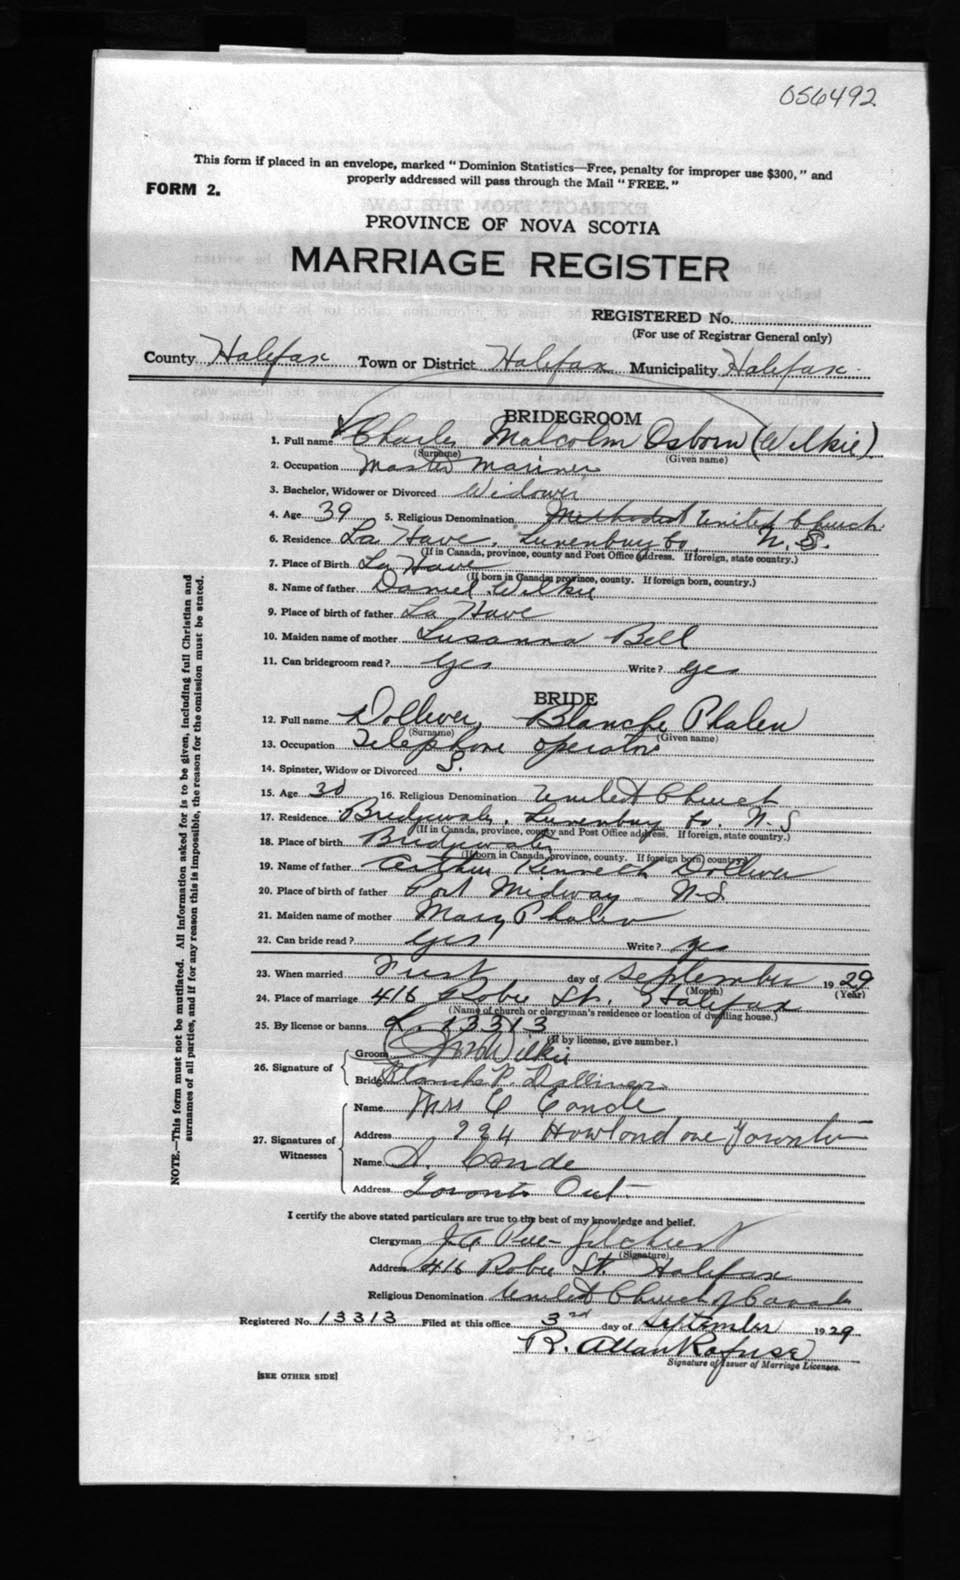 056492
This form if placed in an envelope, marked "Dominion Statistics—Free, penalty for improper use $300," and
properly addressed will pass through the Mail "FREE."
FORM 2.
PROVINCE OF NOVA SCOTIA
MARRIAGE REGISTER
REGISTERED No.
(For use of Registrar General only)
County Halifax Town or District Halifax Municipality Halifax
BRIDEGROOM
1. Full name Charles Malcolm Osborn (Wilkie)
(Surname) (Given name)
2. Occupation Master Mariner
3. Bachelor, Widower or Divorced Widower
4. Age 39 5. Religious Denomination Methodist United Church
6. Residence La Have, Lunenburg Co, N.S.
(If in Canada, province, county and Post Office address. If foreign, state country.)
7. Place of Birth La Have
(If born in Canada, province, county. If foreign born, country.)
8. Name of father Daniel Wilkie
9. Place of birth of father La Have
10. Maiden name of mother Susanna Bell
11. Can bridegroom read? Yes Write? yes
BRIDE
12. Full name Dolliver, Blanche Phalen
(Surname) (Given name)
13. Occupation Telephone operator
14. Spinster, Widow or Divorced S.
15. Age 30 16. Religious Denomination United Church
17. Residence Bridgewater, Lunenburg Co. N.S
(If in Canada, province, county and Post Office address. If foreign, state country.)
18. Place of birth Bridgewater
(If born in Canada, province, county. If foreign born, country.)
19. Name of father Arthur Kenneth Dolliver
20. Place of birth of father Port Medway N.S.
21. Maiden name of mother Mary Phalen
22. Can bride read? Yes Write? yes
23. When married First day of September 1929
(Month) (Year)
24. Place of marriage 416 Robie St. Halifax
(Name of church or clergyman's residence or location of dwelling house.)
25. By license or banns L. 13313
(If by license, give number.)
26. Signature of
Groom Wilkie
Bride Blanche P. Dolliver
27. Signatures of
Witnesses
Name Mrs C Conde
Address 224 Howland ave Toronto
Name A. Conde
Address Toronto Ont.
I certify the above stated particulars are true to the best of my knowledge and belief.
Clergyman
(Signature)
Address 416 Robie St. Halifax
Religious Denomination United Church of Canada
Registered No. 13313 Filed at this office 3rd day of September 1929
R. Allan Rafuse
Signature of Issuer of Marriage Licenses.
[SEE OTHER SIDE]
NOTE.—This form must not be mutilated. All information asked for is to be given, including full Christian and
surnames of all parties, and if for any reason this is impossible, the reason for the omission must be stated.